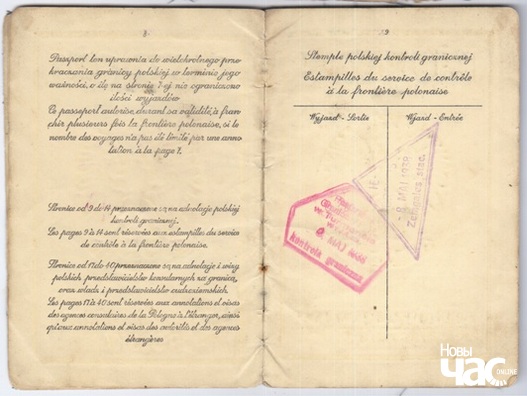 8
Paszport ten uprawnia do wielokrotnego prze-
kraczania granicy polskiej w terminie jego
ważności, o ile na stronie 7-ej nie ograniczono
ilości wyjazdów
Ce passeport autorise, durant sa validité, à fran-
chir plusieurs fois la frontière polonaise, si le
nombre des voyages n'a pas été limité par une anno-
tation à la page 7.
Stronice od 9 do 14 przeznaczone są na adnotacje polskiej
kontroli granicznej.
Les pages 9 à 14 sont réservées aux estampilles du service
de contrôle à la frontière polonaise.
Stronice od 17 do 40 przeznaczone są na adnotacje i wizy
polskich przedstawicielstw konsularnych za granicą,
oraz władz i przedstawicielstw cudzoziemskich.
Les pages 17 à 40 sont réservées aux annotations et visas
des agences consulaires de la Pologne à l'étranger, ainsi
qu'aux annotations et visas des autorités et des agences
étrangères
9
Stemple polskiej kontroli granicznej
Estampilles du service de contrôle
à la frontière polonaise
Wyjazd - Sortie
Wjazd - Entrée
8 MAJ
kontrola graniczna
8. MAJ 1939
НОВЫ
ЧАС
ONLINE